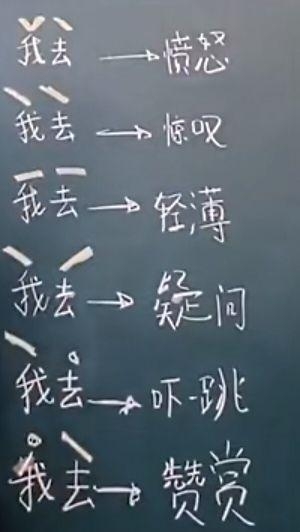 我去→愤怒
我去→惊叹
我去→轻薄
我去→疑问
我去→吓一跳
我去→赞赏